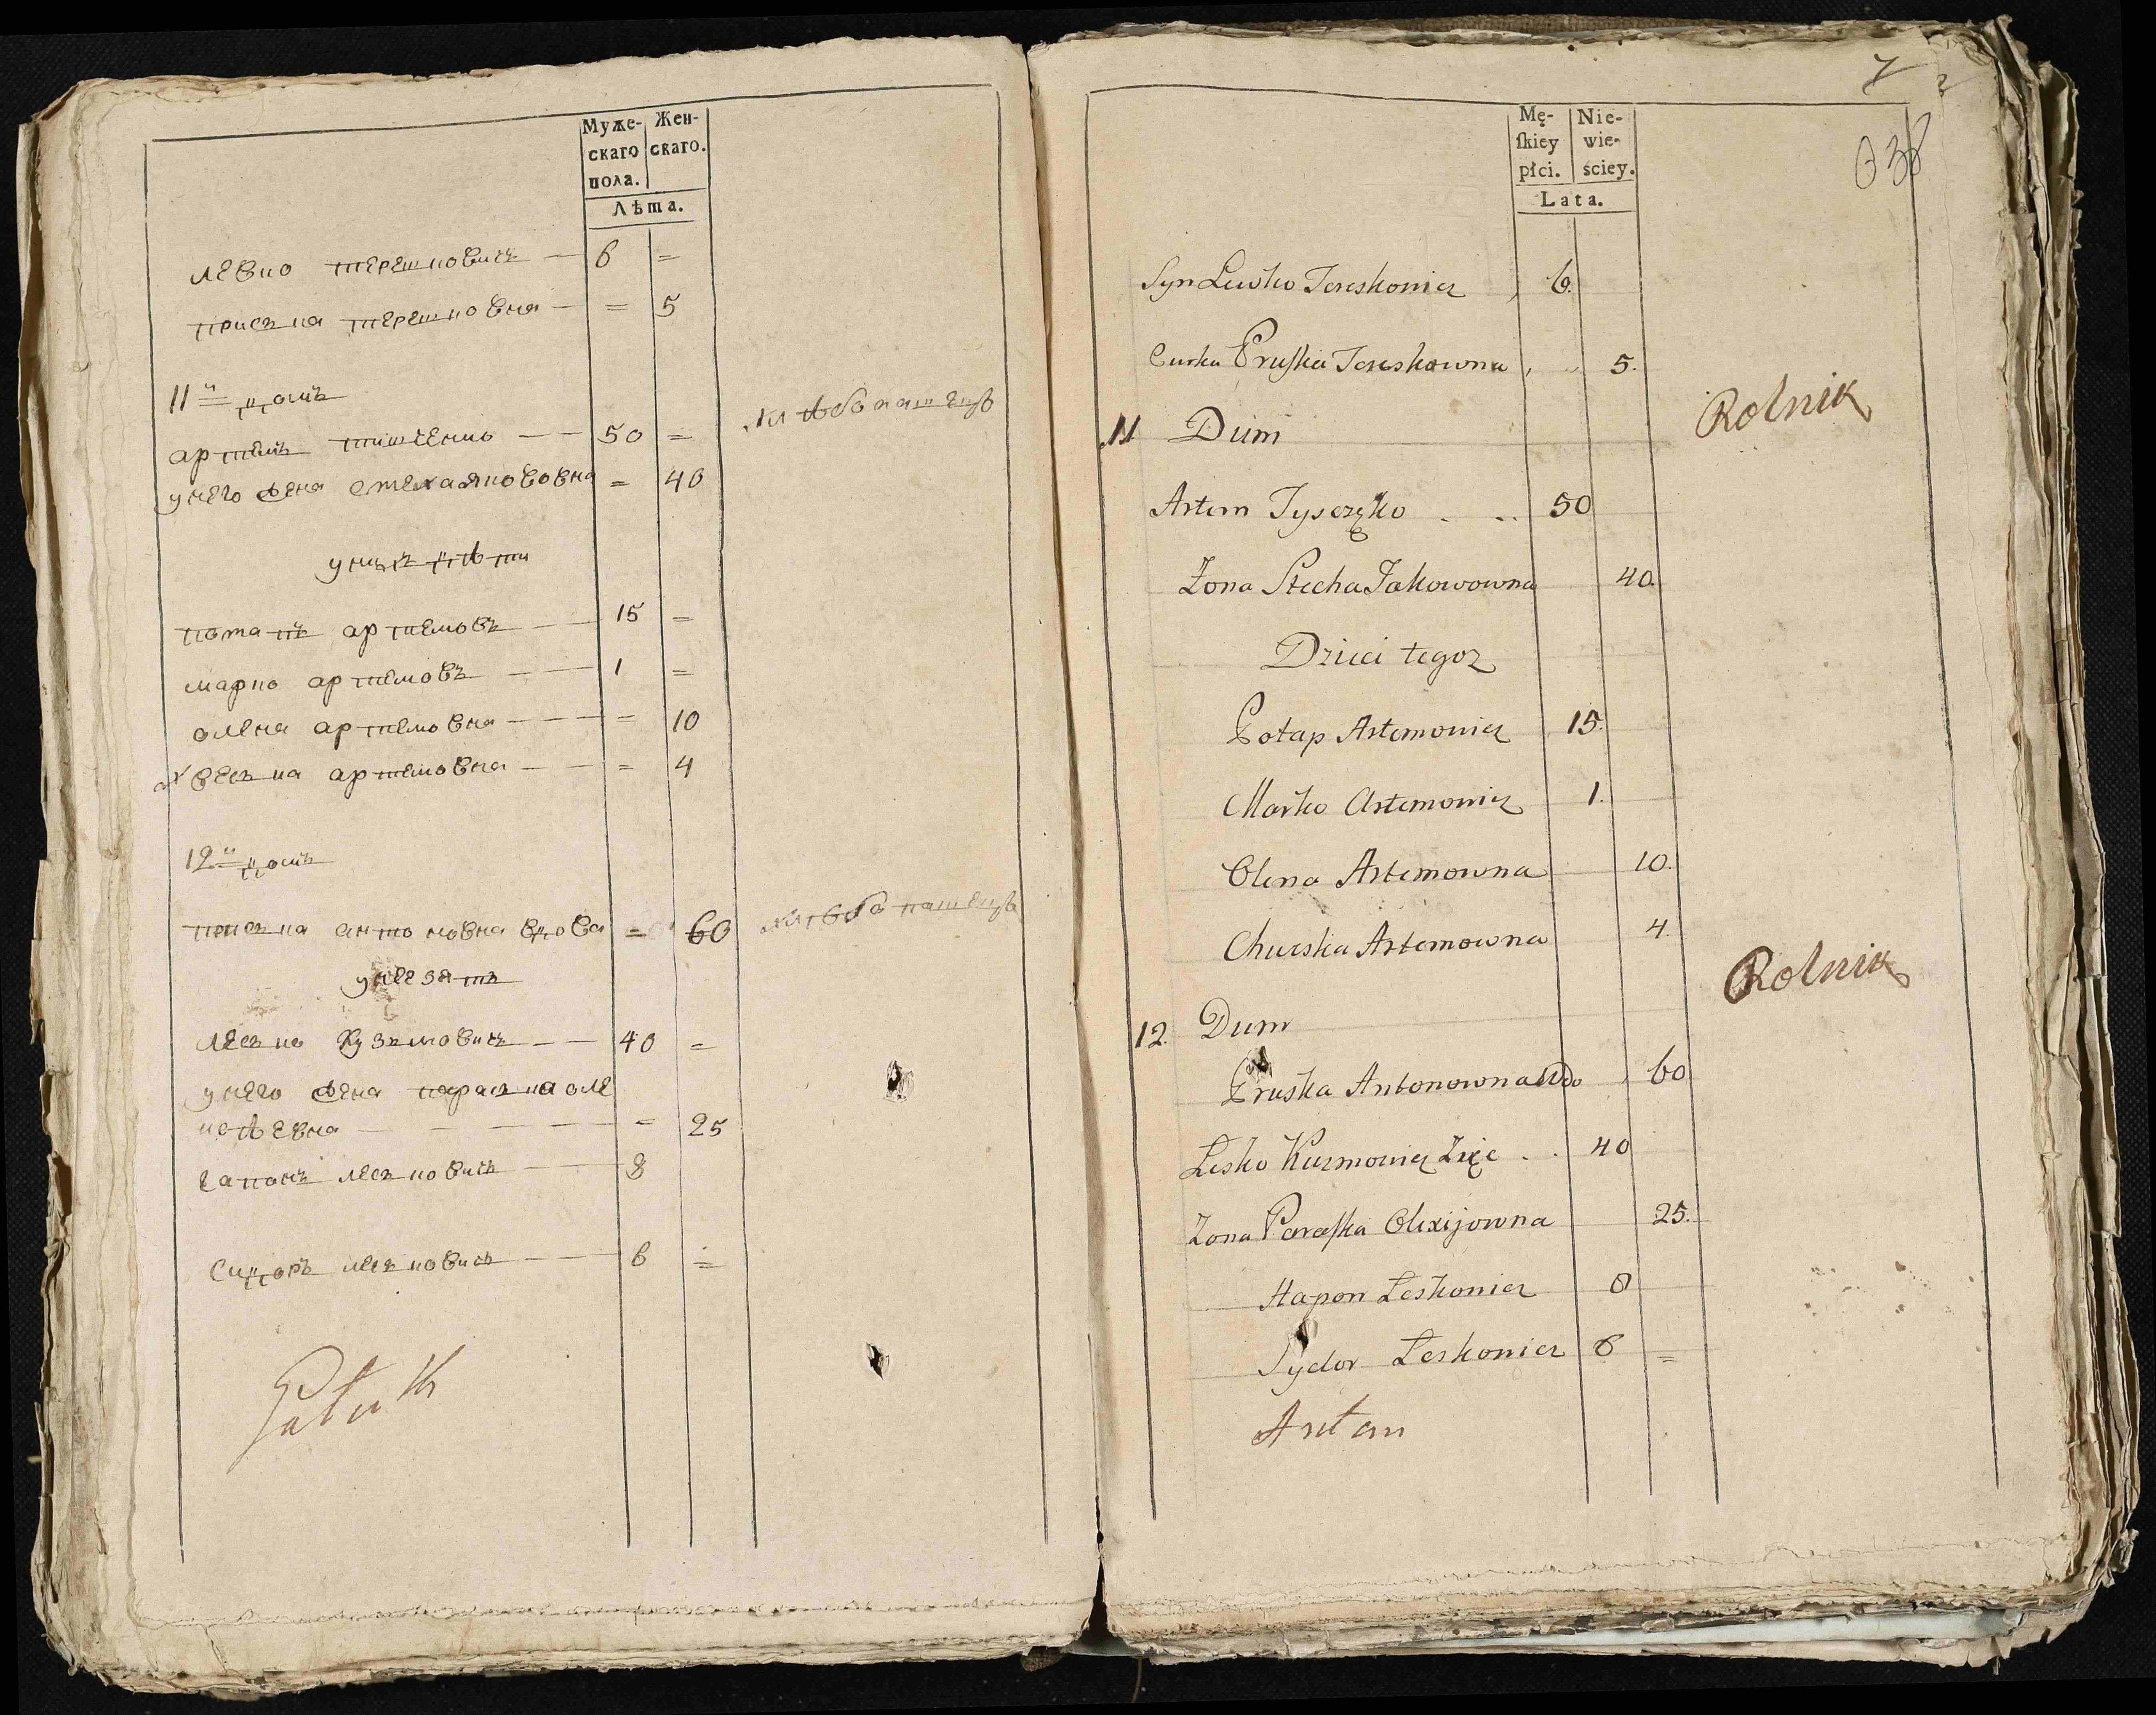 Муже-
скаго
пола.
Жен-
скаго.
Лѣта.
левко терешковичъ — 6 =
приська терешковна — = 5
11й домъ
хлѣбопашецъ
артемъ тишченко — — 50 =
унего жена стехаякововна = 40
унихъ дѣти
потапъ артемовъ — — 15 =
марко артемовъ — — 1 =
олена артемовна — — — = 10
хвеська артемовна — — = 4
12й домъ
приська антоновна вдова = 60 хлѣбопашецъ
унее зять
леско кузмовичъ — — 40 =
унего жена параска оле
ксѣевна — — — — = 25
гапонъ леськовичъ — — 8
сидоръ леськовичъ — — 6 =
7
038
Mę-
ſkiey
płci.
Nie-
wie-
ściey.
Lata.
Syn Lewko Tereskowicz 6.
Curka Pruſka Tereskowna 5.
11 Dum
Rolnik
Artem Tyszczęko . .. 50
Zona Stecha Jakowowna 40.
Dzieci tegoz
Potap Artemowicz 15.
Marko Artemowicz 1.
Olena Artemowna 10.
Chweska Artemowna 4.
Rolnik
12. Dum
Pruska Antonowna Wdo 60
Lesko Kuzmowicz Zięc . . 40
Zona Paraſka Olexijowna 25.
Hapon Leskowicz 8
Sydor Leskowicz 6 =
Antan